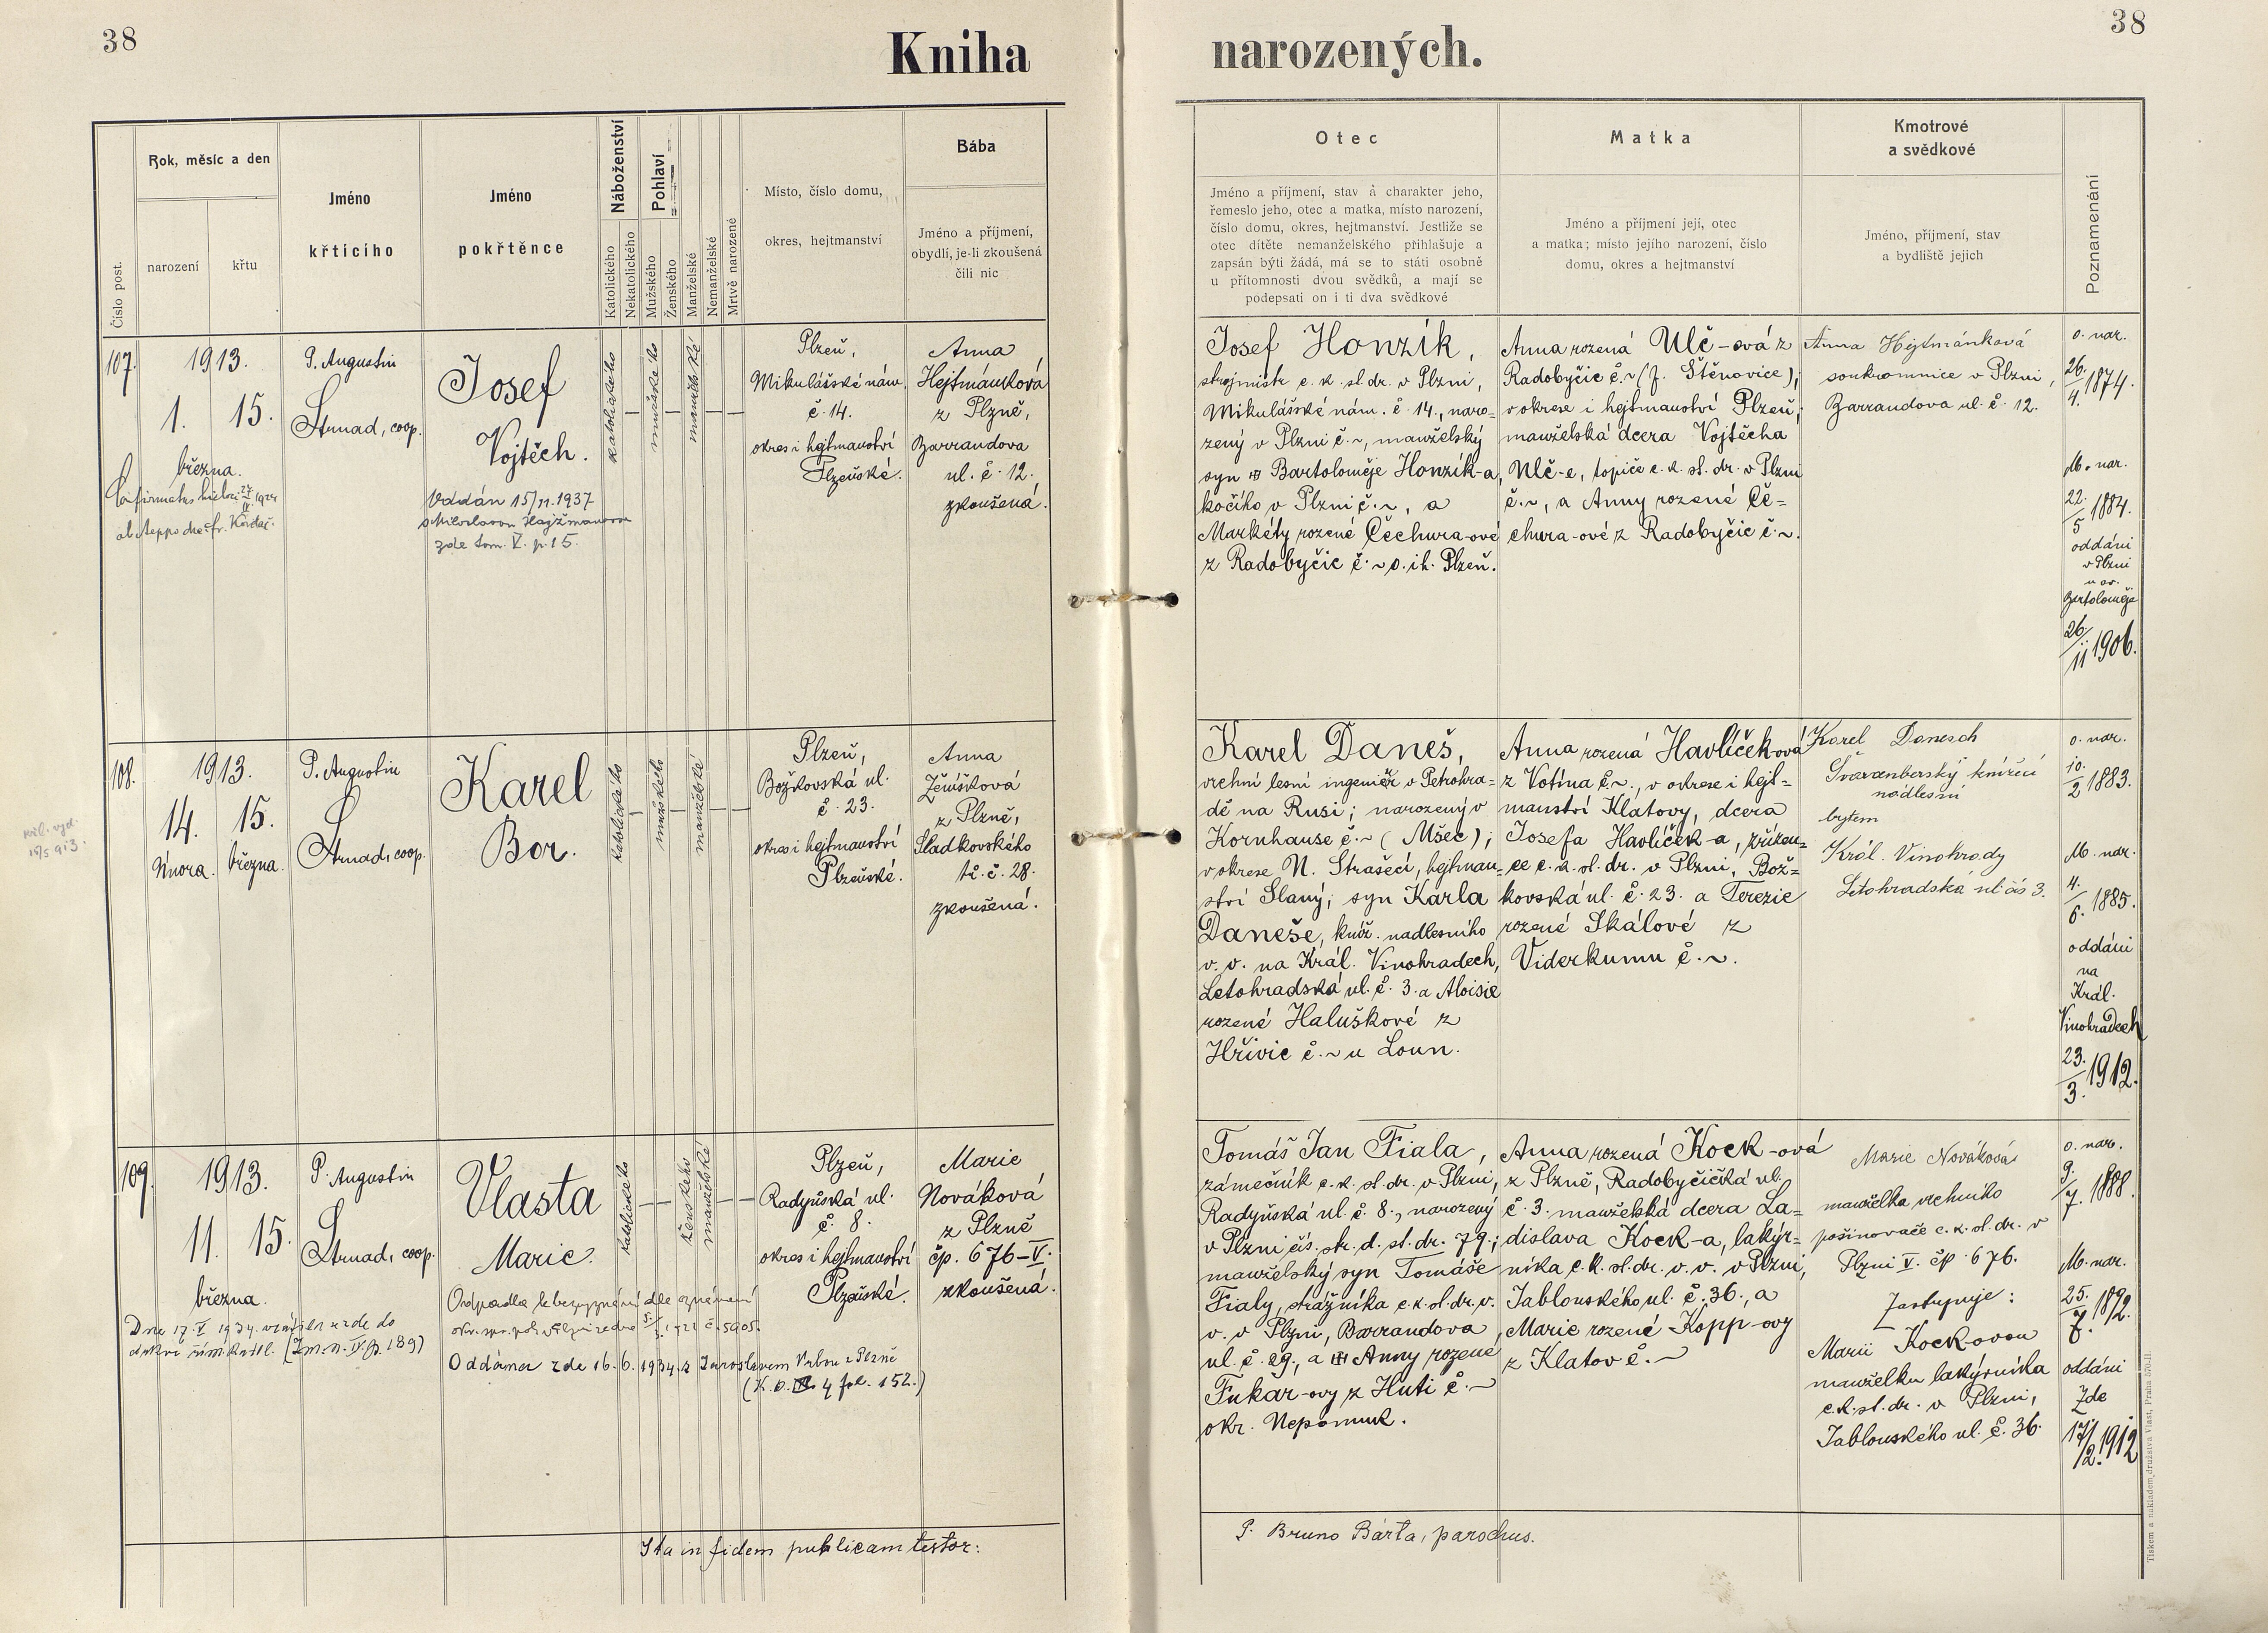 38
Kniha
narozených.
38
Číslo post.
Rok, měsíc a den
narození
křtu
Jméno
křtícího
Jméno
pokřtěnce
Náboženství
Katolického
Nekatolického
Pohlaví
Mužského
Ženského
Manželské
Nemanželské
Mrtvě narozené
Místo, číslo domu,
okres, hejtmanství
Bába
Jméno a příjmení,
obydlí, je-li zkoušená
čili nic
Otec
Jméno a příjmení, stav a charakter jeho,
řemeslo jeho, otec a matka, místo narození,
číslo domu, okres, hejtmanství. Jestliže se
otec dítěte nemanželského přihlašuje a
zapsán býti žádá, má se to státi osobně
u přítomnosti dvou svědků, a mají se
podepsati on i ti dva svědkové
Matka
Jméno a příjmení její, otec
a matka; místo jejího narození, číslo
domu, okres a hejtmanství
Kmotrové
a svědkové
Jméno, příjmení, stav
a bydliště jejich
Poznamenání
107.
1913.
1. 15.
března.
P. Augustin
Strnad, coop.
Josef
Vojtěch.
Oddán 15/11.1937
zde tom. V. p. 15.
katolického
mužského
manželské
Plzeň,
Mikulášské nám.
č. 14.
okres i hejtmanství
Plzeňské.
Anna
Hejtmánková
z Plzně,
Barrandova
ul. č. 12.
zkoušená.
Josef Honzík,
strojmistr c. k. st. dr. v Plzni,
Mikulášské nám. č. 14., naro=
zený v Plzni č. ~, manželský
syn Bartoloměje Honzík-a,
kočího v Plzni č. ~, a
Markéty rozené Čechura-ové
z Radobyčic č. ~ o. i h. Plzeň.
Anna rozená Ulč-ová z
Radobyčic č. ~ (f. Štěnovice),
v okrese i hejtmanství Plzeň;
manželská dcera Vojtěcha
Ulč-e, topiče c. k. st. dr. v Plzni
č. ~, a Anny rozené Če=
chura-ové z Radobyčic č. ~.
Anna Hejtmánková
soukromnice v Plzni,
Barrandova ul. č. 12.
o. nar.
26./4. 1874.
M. nar.
22./5 1884.
oddáni
v Plzni
u sv.
Bartoloměje
26/11 1906.
108.
1913.
14. 15.
Února. března.
P. Augustin
Strnad, coop.
Karel
Bor.
katolického
mužského
manželské
Plzeň,
Božkovská ul.
č. 23.
okres i hejtmanství
Plzeňské.
Anna
z Plzně,
Sladkovského
tř. č. 28.
zkoušená.
Karel Daneš,
vrchní lesní ingeniér v Petrohra=
dě na Rusi; narozený v
Kornhause č. ~ (Mšec);
v okrese N. Strašecí, hejtman=
ství Slaný; syn Karla
Daneše, kníž. nadlesního
v. v. na Král. Vinohradech,
Letohradská ul. č. 3. a Aloisie
rozené Haluškové z
Hřivic č. ~ u Loun.
Anna rozená Havlíčeková
z Votína č. ~, v okrese i hejt=
manství Klatovy, dcera
Josefa Havlíček-a, zřízen=
ce c. k. st. dr. v Plzni, Bož=
kovská ul. č. 23. a Terezie
rozené Skálové z
Viderkumu č. ~.
Karel Danesch
Švarcnberský knížecí
nadlesní
bytem
Král. Vinohrady
Letohradská ul čís 3.
o. nar.
10./2 1883.
M. nar.
4./6. 1885.
oddáni
na
Král.
Vinohradech
23./3. 1912.
109.
1913.
11. 15.
března.
P. Augustin
Strnad, coop.
Vlasta
Marie.
Oddána zde 16. 6. 1934 s Jaroslavem Vrbou z Plzně
katolického
ženského
manželské
Plzeň,
Radyňská ul.
č. 8.
okres i hejtmanství
Plzeňské.
Marie
Nováková
z Plzně
čp. 676-V.
zkoušená.
Tomáš Jan Fiala,
zámečník c. k. st. dr. v Plzni,
Radyňská ul. č. 8., narozený
v Plzni čís. str. d. st. dr. 79.;
manželský syn Tomáše
Fialy, strážníka c. k. st. dr. v.
v. v Plzni, Barrandova
ul. č. 29., a Anny rozené
Fukar-ovy z Huti č. ~
okr. Nepomuk.
Anna rozená Kock-ová
z Plzně, Radobyčická ul.
č. 3. manželská dcera La=
dislava Kock-a, lakýr=
níka c. k. st. dr. v. v. v Plzni,
Jablonského ul. č. 36., a
Marie rozené Kopp-ovy
z Klatov č. ~
Marie Nováková
manželka vrchního
pošinovače c. k. st. dr. v
Plzni V. čp. 676.
Zastupuje:
Marii Kock-ovou
manželku lakýrníka
c. k. st. dr. v Plzni,
Jablonského ul. č. 36.
o. nar.
9./7. 1888.
M. nar.
25./7. 1892.
oddáni
Zde
17./2. 1912
Ita in fidem publicam testor:
P. Bruno Bárta, parochus.
Tiskem a nákladem družstva Vlast, Praha 570-II.